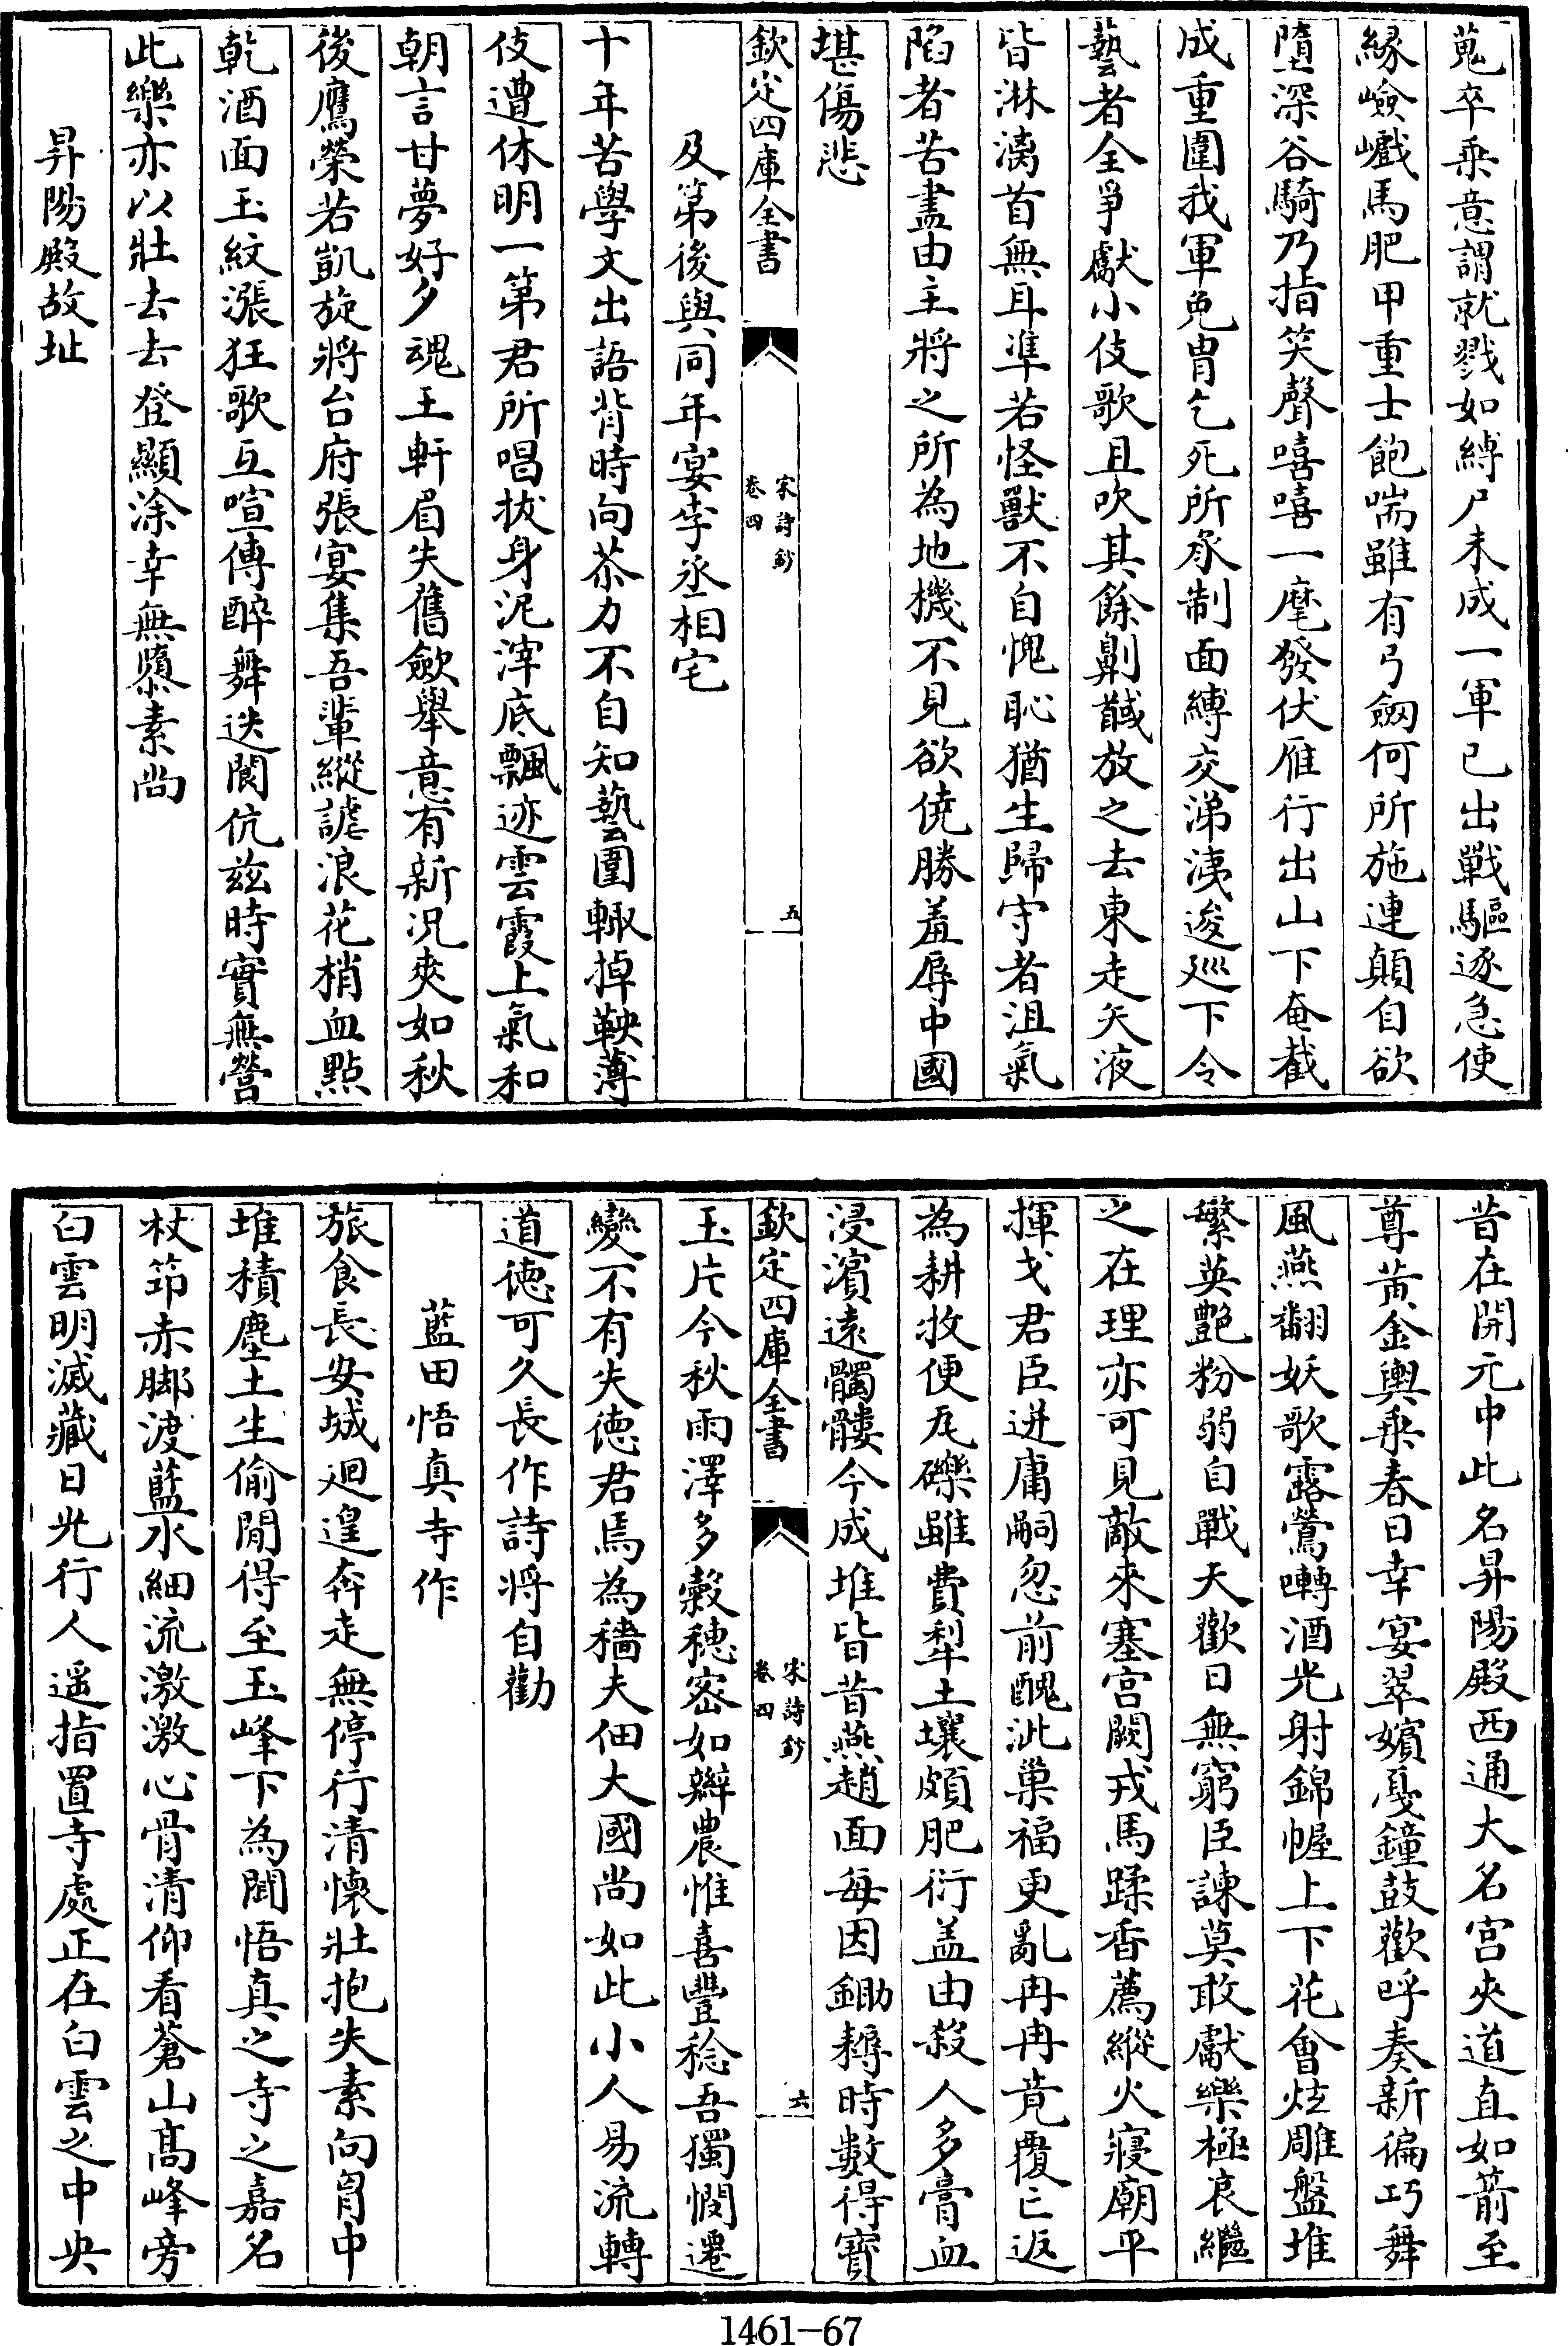 蒐卒乘意謂就戮如縛尸未成一軍已出戰驅逐急使
緣嶮巇馬肥甲重士飽喘雖有弓劔何所施連顛自欲
墮深谷騎乃指笑聲嘻嘻一麾發伏雁行出山下奄截
成重圍我軍免胄乞死所承制面縛交涕洟逡廵下令
藝者全爭獻小伎歌且吹其餘劓馘放之去東走矢液
皆淋漓首無耳準若怪獸不自愧恥猶生歸守者沮氣
陷者苦盡由主將之所為地機不見欲僥勝羞辱中國
堪傷悲
欽定四庫全書
宋詩鈔
卷四
五
及第後與同年宴李丞相宅
十年苦學文出語背時向荼力不自知藝圃輙掉鞅薄
伎遭休明一第君所唱拔身泥滓底飄迹雲霞上氣和
朝言甘夢好夕魂王軒眉失舊歛舉意有新况爽如秋
後鷹榮若凱旋將台府張宴集吾輩縱謔浪花梢血點
乾酒面玉紋漲狂歌互喧傳醉舞迭閬伉兹時實無營
此樂亦以壯去去登顯涂幸無隳素尚
昇陽殿故址
昔在開元中此名昇陽殿西通大名宫夾道直如箭至
尊黄金輿乘春日幸宴翠嬪戞鐘鼓歡呼奏新徧巧舞
風燕翻妖歌露鶯囀酒光射錦幄上下花會炫雕盤堆
繁英艷粉弱自戰天歡日無窮臣諫莫敢獻樂極哀繼
之在理亦可見敵來塞宫闕戎馬蹂香薦縱火寢廟平
揮戈君臣迸庸嗣忽前醜泚巢福更亂冉冉竟覆亡返
為耕牧便瓦礫雖費犁土壤頗肥衍盖由殺人多膏血
浸濵遠髑髏今成堆皆昔燕趙面毎因鋤耨時數得寳
欽定四庫全書
宋詩鈔
卷四
六
玉片今秋雨澤多榖穂密如辮農惟喜豐稔吾獨憫遷
變不有失徳君焉為穡夫佃大國尚如此小人易流轉
道徳可久長作詩將自勸
藍田悟真寺作
旅食長安城廻遑奔走無停行清懷壯抱失素向胷中
堆積塵土生偷閒得至玉峰下為聞悟真之寺之嘉名
杖笻赤脚渡藍水細流激激心骨清仰看蒼山髙峰旁
白雲明滅藏日光行人遥指置寺處正在白雲之中央
1461-67